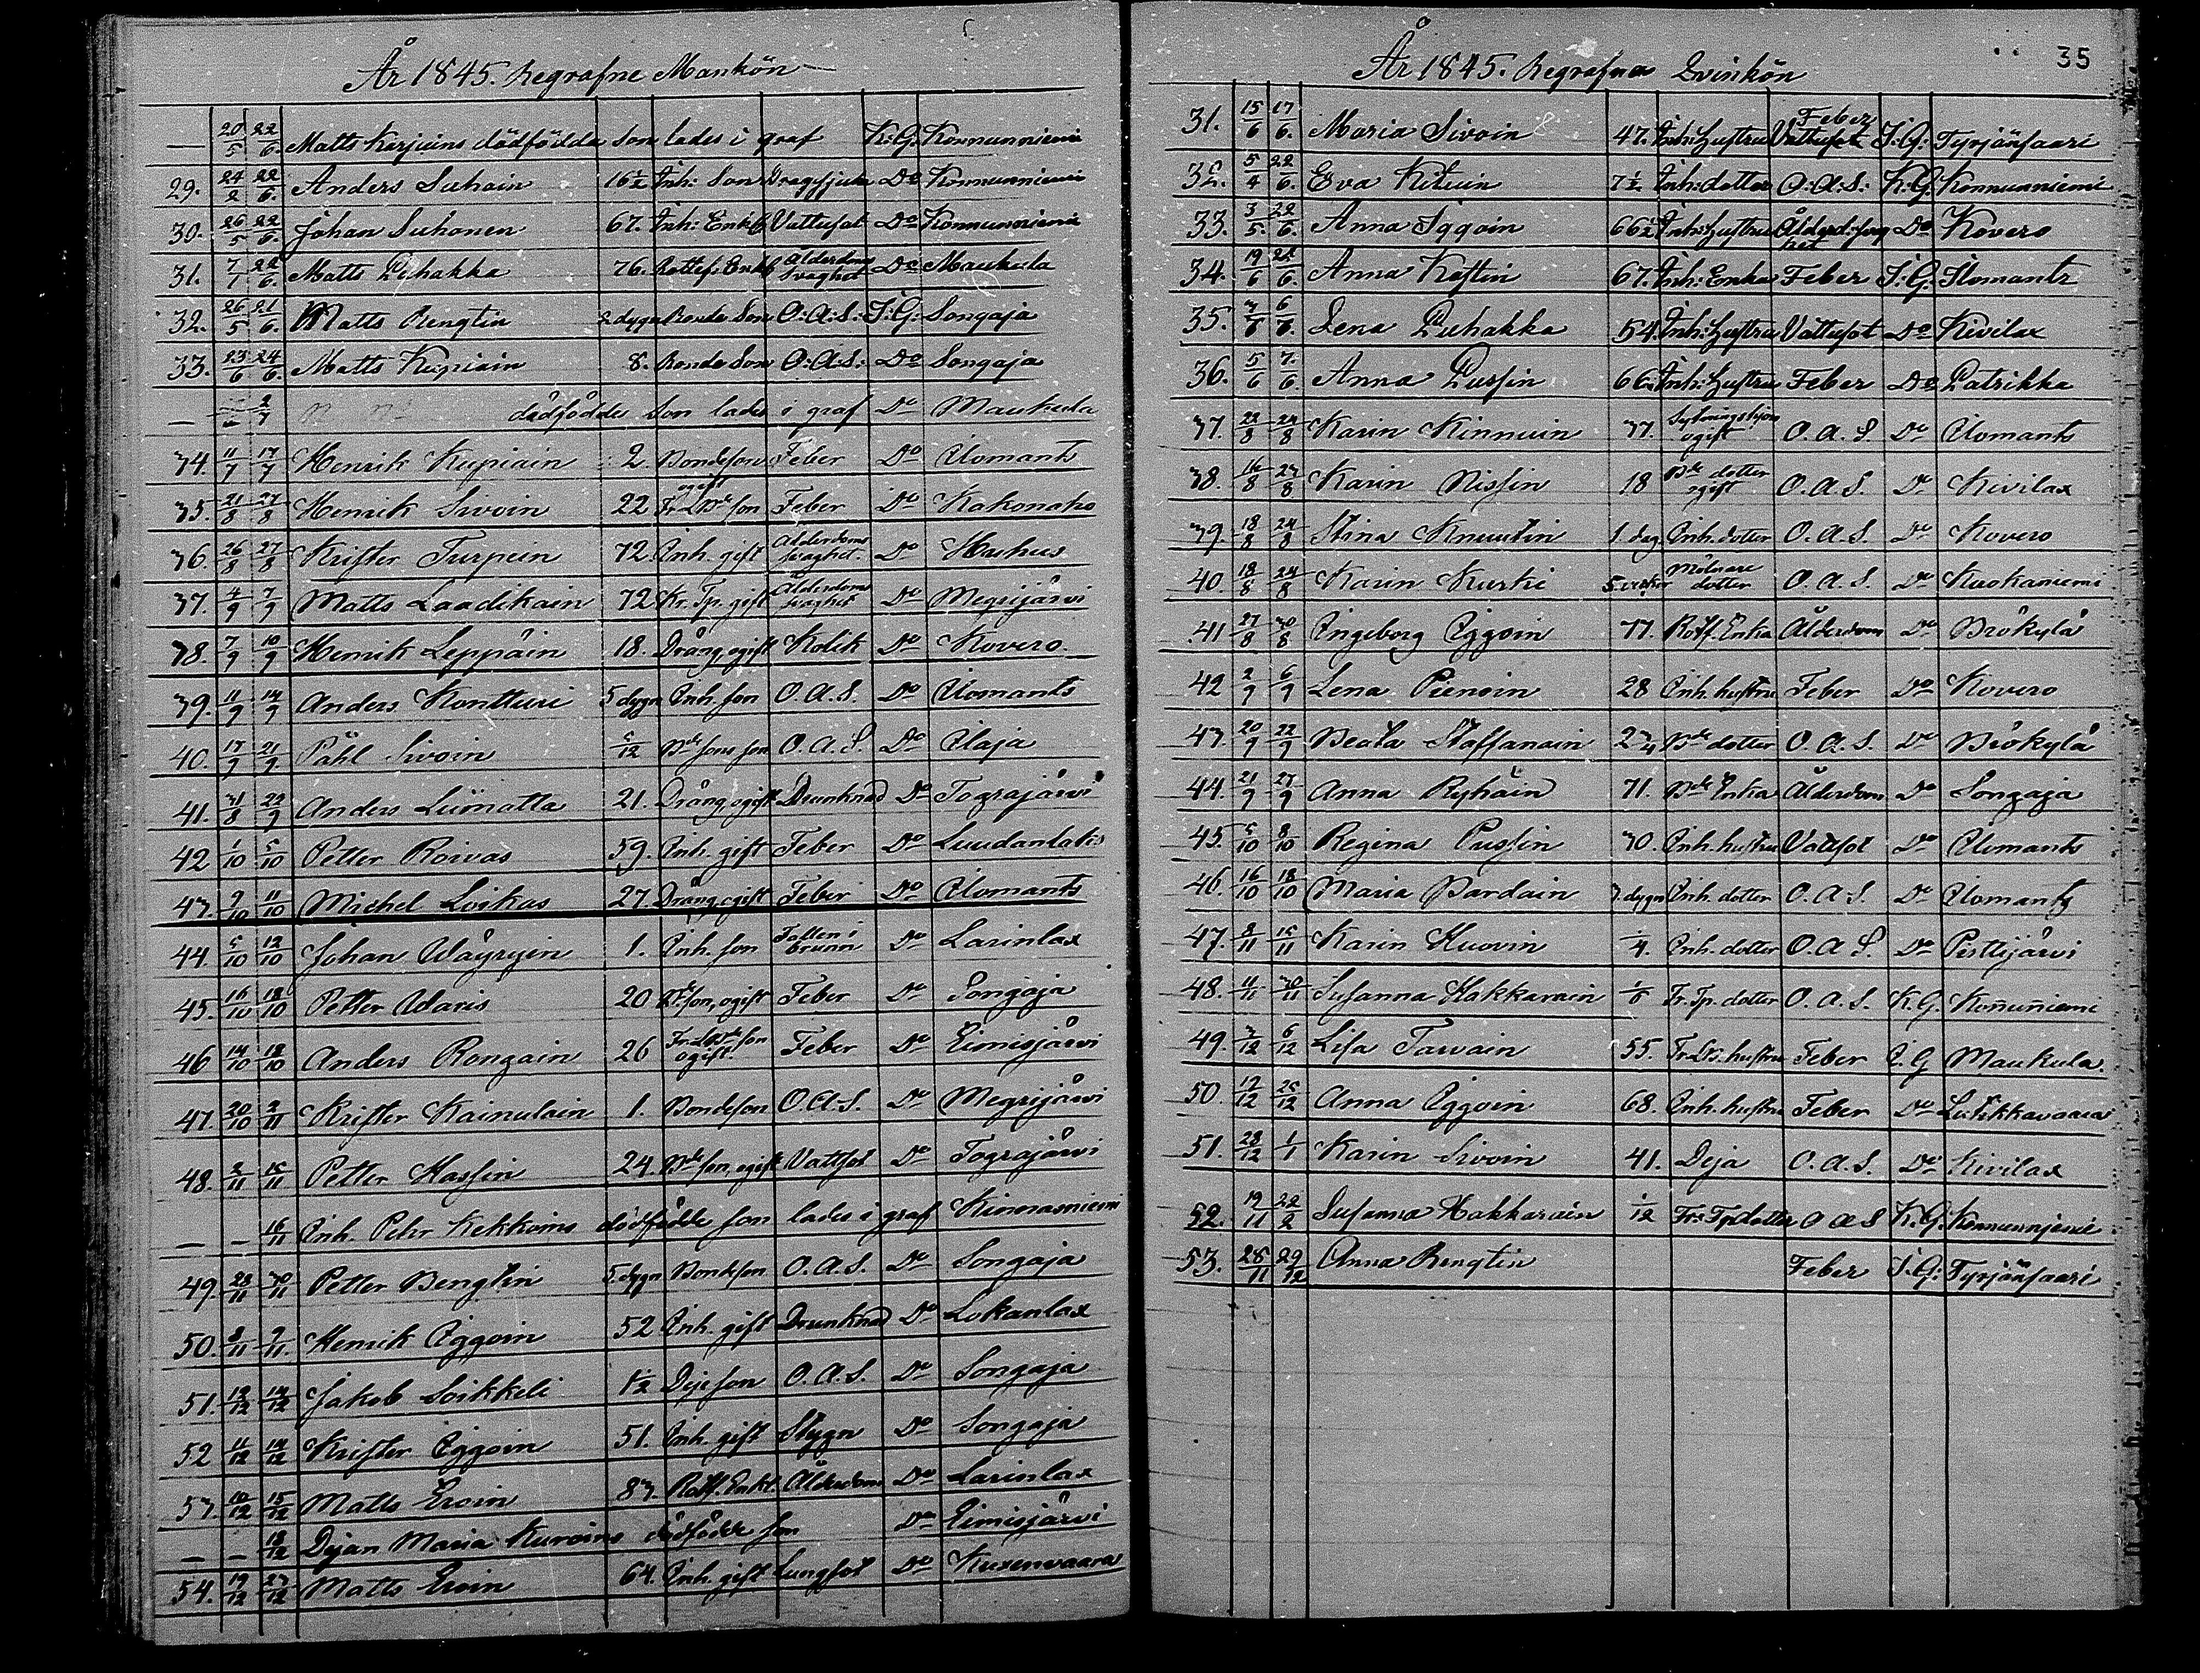 År 1845. Begrafne Mankön
— 20/5 22/6 Matts Karjuins dödfödda son lades i graf K:G: Konnunniemi
29. 24/2 22/6. Anders Suhoin 16 1/2 Inh: Son Dragsjuka Do Konnunniemi
30. 26/5 22/6. Johan Suhonen 67. Inh: Enkl Vattusot Do Konnunniemi
31. 7/7 22/6. Matts Puhakka 76. Rottef: Enkl Ålderdoms svaghet Do Maukula
32. 26/5 21/6. Matts Bengtin 2 dygn Bonde Son O:A:S: I:G: Songaja
33. 23/6 24/6. Matts Kupiain 8. Bonde Son O:A:S: Do Songaja
— – 2/7 dödföddes son lades i graf Do Maukula
34. 11/7 17/7 Henrik Kupiain 2. Bondeson Feber Do Ilomants
35. 21/8 27/8 Henrik Sivoin 22 ogift Feber Do Kakonaho
36. 26/8 27/8 Krister Turpein 72. Inh. gift Ålderdoms svaghet. Do Huhus
37. 4/9 7/9 Matts Laadikain 72 Kr. Tp. gift Ålderdoms svaghet Do Megrijärvi
38. 7/9 10/9 Henrik Leppäin 18. Dräng, ogift Kolik Do Kovero.
39. 11/9 14/9 Anders Kontturi 5 dygn Inh. son O.A.S. Do Ilomants
40. 17/9 21/9 Påhl Sivoin 5/12 Bde sons son O.A.S. Do Ilaja
41. 31/8 22/9 Anders Liimatta 21. Dräng, ogift Drunknad Do Tograjärvi
42 1/10 5/10 Petter Roivas 59. Inh. gift Feber Do Luudanlaks
43. 9/10 11/10 Michel Loikas 27. Dräng, ogift Feber Do Ilomants
44. 5/10 12/10 Johan Wäyryin 1. Inh. son Fallen i brunn Do Larinlax
45. 16/10 18/10 Petter Waris 20 Bde son, ogift Feber Do Songaja
46 14/10 18/10 Anders Rongain 26 ogift Feber Do Eimisjärvi
47. 20/10 2/11 Krister Kainulain 1. Bondeson O.A.S. Do Megrijärvi
48. 2/11 15/11 Petter Hassin 24. Bde son, ogift Vattsot Do Tograjärvi
— – 16/11 Inh. Petr Kekkoins dödfödde son lades i graf Kinnasniemi
49. 23/11 30/11 Petter Bengtin 5. dygn Bondeson O.A.S. Do Songaja
50. 3/11 9/11. Henrik Iggoin 52 Inh. gift Drunknad Do Lokanlax
51. 12/12 14/12 Jakob Soikkeli 1/2 Deje son O.A.S. Do Songaja
52 11/12 14/12 Krister Iggoin 51. Inh. gift Stygn Do Songaja
53. 10/12 15/12 Matts Eroin 83. Rottf. Enkl. Ålderdoms Do Larinlax
— – 18/12 Dejan Maria Kuroins dödfödde son Do Eimisjärvi
54. 19/12 23/12 Matts Eroin 64. Inh. gift Lungsot Do Kuxenvaara
35
År 1845. Begrafna Qvinkön
31. 15/6 17/6. Maria Sivoin 47. Inh: Hustru Feber Vattusot I:G: Tyrjänsaari
32. 5/4 22/6. Eva Kituin 7 1/2 Inh: dotter O:A:S: K:G: Konnunniemi
33. 3/5. 22/6. Anna Iggoin 66 1/2 Inh: Hustru Ålderd: svaghet Do Kovero
34. 19/6 21/6. Anna Kostin 67. Inh: Enka Feber I:G: Ilomants
35. 3/6 6/6. Lena Puhakka 54. Inh: Hustru Vattusot Do Kivilax
36. 5/6 7/6. Anna Pussin 66. Inh: Hustru Feber Do Patrikka
37. 22/8 24/8 Karin Kinnuin 77. Sytningshjon ogift O.A.S. Do Ilomants
38. 16/8 23/8 Karin Nissin 18 Bde dotter ogift O.A.S. Do Kivilax
39. 18/8 24/8 Stina Knuutin 1. dag Inh. dotter O.A.S. Do Kovero
40. 18/8 24/8 Karin Kurki 5. veckor Mölnare dotter O.A.S. Do Kuokaniemi
41 27/8 30/8 Ingeborg Iggoin 77. Rottf. Enka Ålderdom Do Brökylä
42 2/9 6/9 Lena Pienoin 28 Inh. hustru Feber Do Kovero
43. 20/9 22/9 Beata Staffanain 2 3/4 Bde dotter O.A.S. Do Brökylä
44. 21/9 27/9 Anna Ryhäin 71. Bde Enka Ålderdom Do Songaja
45. 5/10 8/10 Regina Pussin 30. Inh. hustru Vattsot Do Ilomants
46. 16/10 18/10 Maria Pardain 3. dygn Inh. dotter O.A.S. Do Ilomants
47. 8/11 15/11 Karin Huovin 1/4. Inh. dotter O.A.S. Do Perttijärvi
48. 11/11 30/11 Susanna Hakkarain 1/6 Fr. Tp. dotter O.A.S. K.G. Konnunniemi
49. 3/12 6/12 Lisa Tarvain 55. hustru Feber I.G Maukula.
50. 12/12 25/12 Anna Iggoin 68. Inh. hustru Feber Do Lutikkavaara
51. 28/12 1/1 Karin Sivoin 41. Deja O.A.S. Do Kivilax
52. 19/11 22/2 Susanna Hakkarain 1/12 Fr: Tp dotter O A S K.G: Konnunniemi
53. 28/11 29/12 Anna Bengtin Feber I.G: Tyrjänsaari